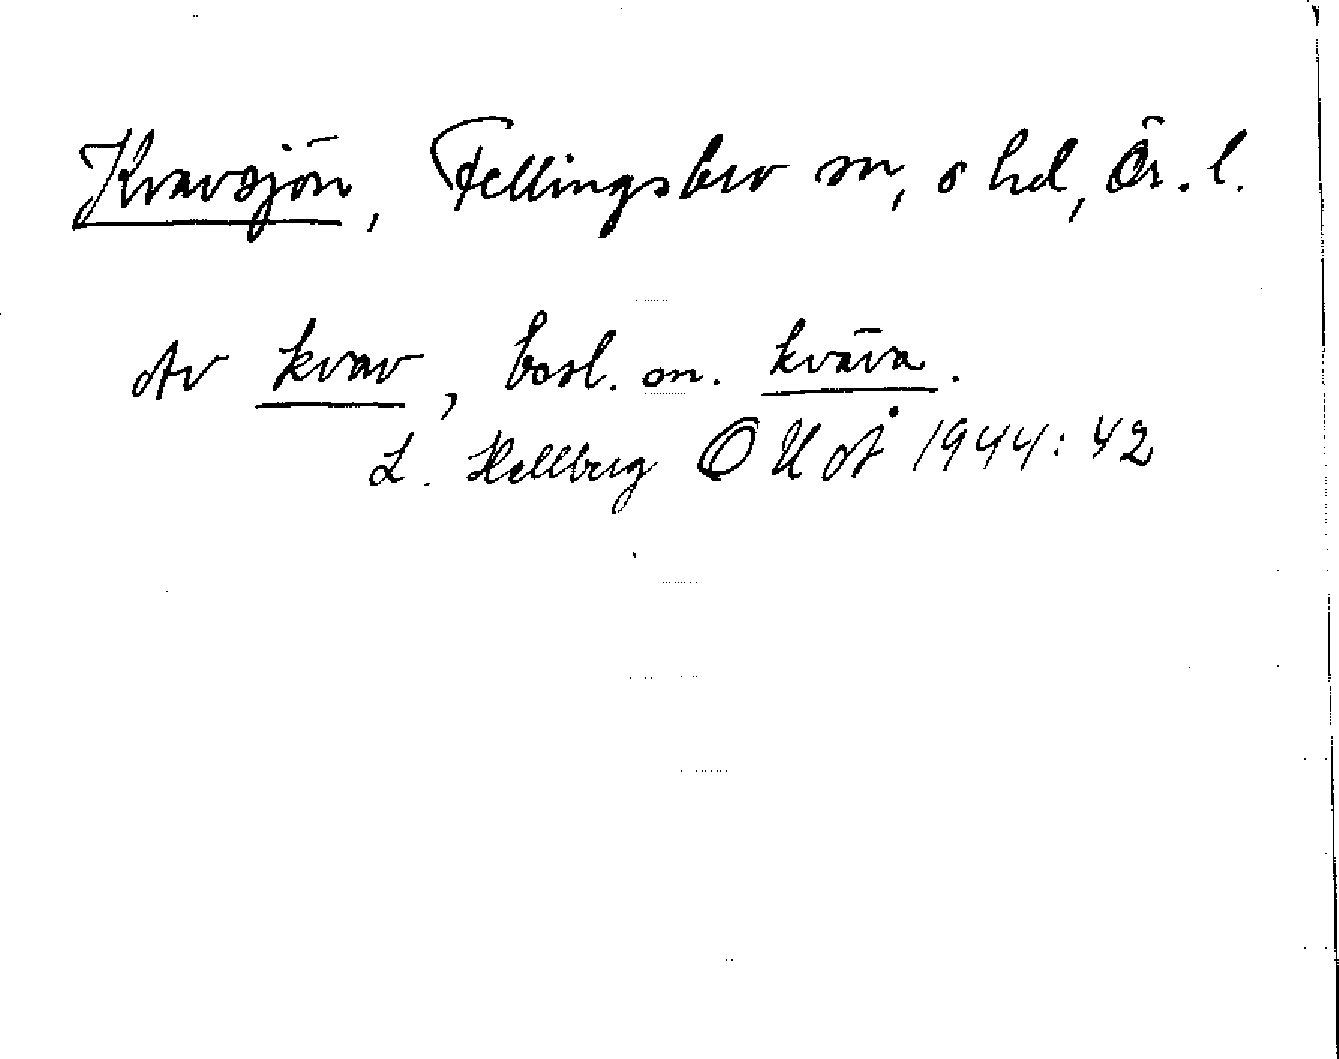 Kvavsjön, Fellingsbro sn, o hd, Ör. l.
Av kvav, besl. m. kväva.
L. Hellberg OUÅ 1944: 42